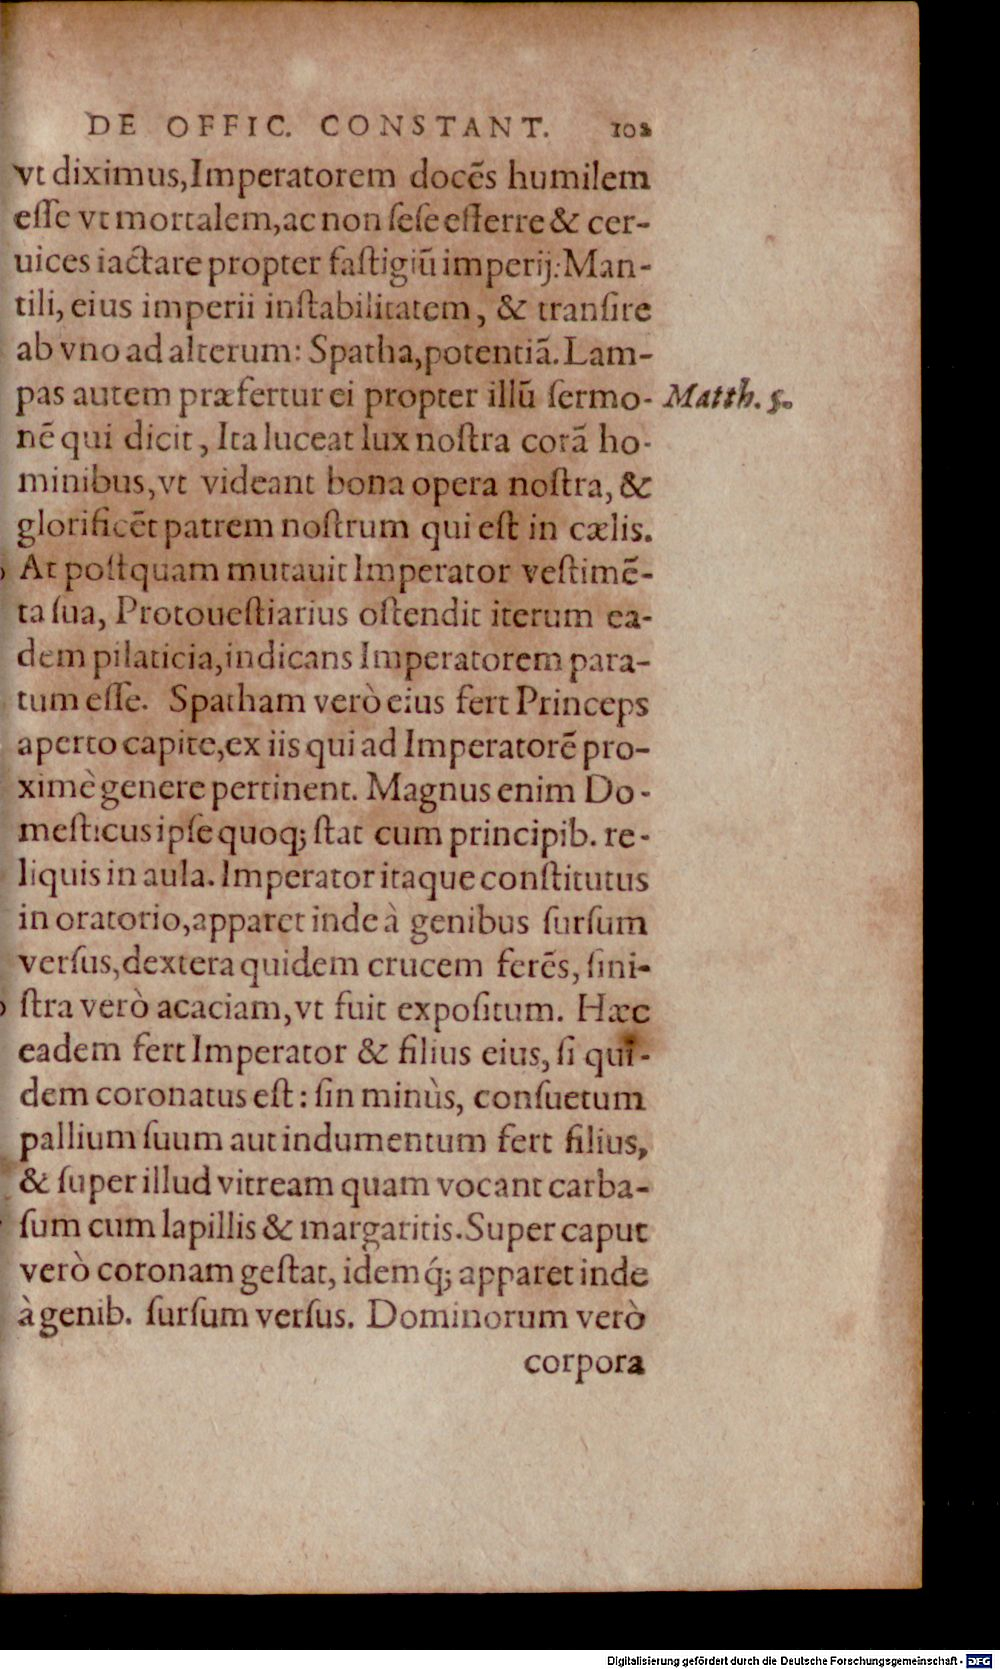 DE OFFIC. CONSTANT. 102
vt diximus,Imperatorem docẽs humilem
eſſe vt mortalem,ac non ſeſe efferre & cer-
uices iactare propter faſtigiũ imperij: Man-
tili, eius imperii inſtabilitatem, & tranſire
ab vno ad alterum: Spatha,potentiã. Lam-
pas autem præfertur ei propter illũ ſermo-
Matth. 5.
nẽ qui dicit, Ita luceat lux noſtra corã ho-
minibus,vt videant bona opera noſtra, &
glorificẽt patrem noſtrum qui eſt in cælis.
At poſtquam mutauit Imperator veſtimẽ-
ta ſua, Protoueſtiarius oſtendit iterum ea-
dem pilaticia,indicans Imperatorem para-
tum eſſe. Spatham verò eius fert Princeps
aperto capite,ex iis qui ad Imperatorẽ pro-
ximè genere pertinent. Magnus enim Do-
meſticus ipſe quoq; ſtat cum principib. re-
liquis in aula. Imperator itaque conſtitutus
in oratorio,apparet inde à genibus ſurſum
verſus,dextera quidem crucem ferẽs, ſini-
ſtra verò acaciam,vt fuit expoſitum. Hæc
eadem fert Imperator & filius eius, ſi qui-
dem coronatus eſt: ſin minùs, conſuetum
pallium ſuum aut indumentum fert filius,
& ſuper illud vitream quam vocant carba-
ſum cum lapillis & margaritis. Super caput
verò coronam geſtat, idemq́; apparet inde
à genib. ſurſum verſus. Dominorum verò
corpora
Digitalisierung gefördert durch die Deutsche Forschungsgemeinschaft - DFG